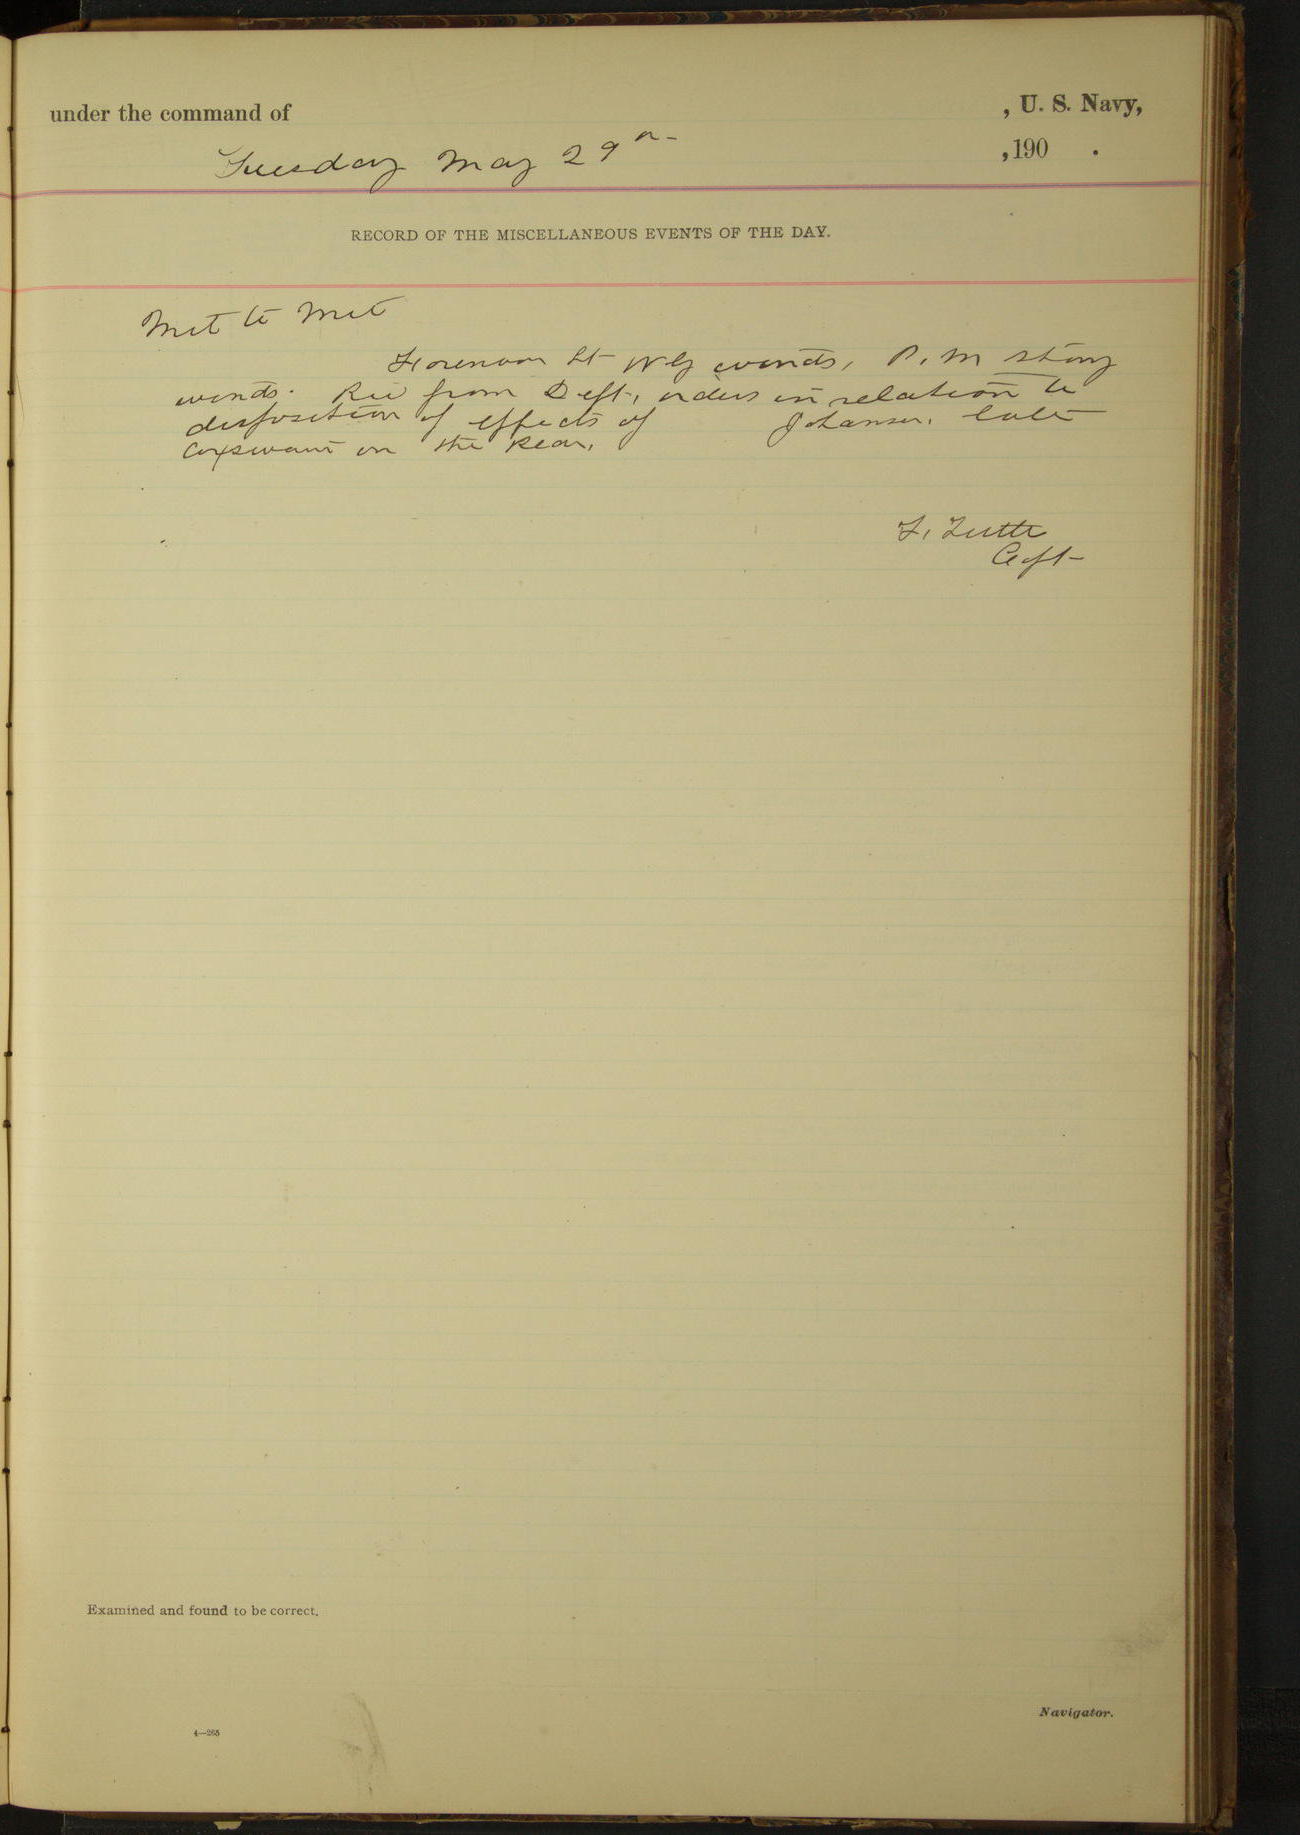 under the command of , U. S. Navy,
Tuesday May 29th ,190 .
RECORD OF THE MISCELLANEOUS EVENTS OF THE DAY.
Mid to Mid
Forenoon Lt Wly winds, P.M strong
winds. Rec from Dept, orders in relation to
disposition of effects of Johansen, late
Coxswain on the Bear.
F. Tuttle
Capt
Examined and found to be correct.
Navigator.
4—265